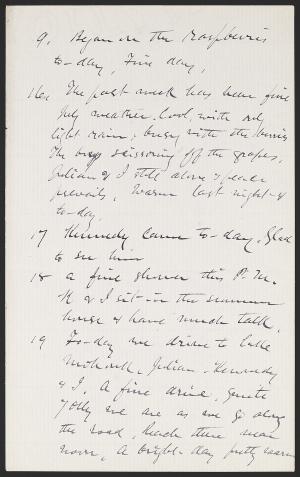 9. Began on the raspberries
to-day, Fine day,
16. The past week has been fine
July weather. Cool, with only
light rain; busy with the berries
The boys scissoring off the grapes,
Julian & I still alone & peace
prevails, Warm last night &
to-day.
17 Kennedy came to-day, Glad
to see him
18 a fine shower this P.M.
K & I sit in the summer
house & have much talk,
19 To-day we drive to Lake
Mohonk, Julian, Kennedy
& I. A fine drive, quite
jolly we are as we go along
the road, Reach there near
noon, A bright day pretty warm